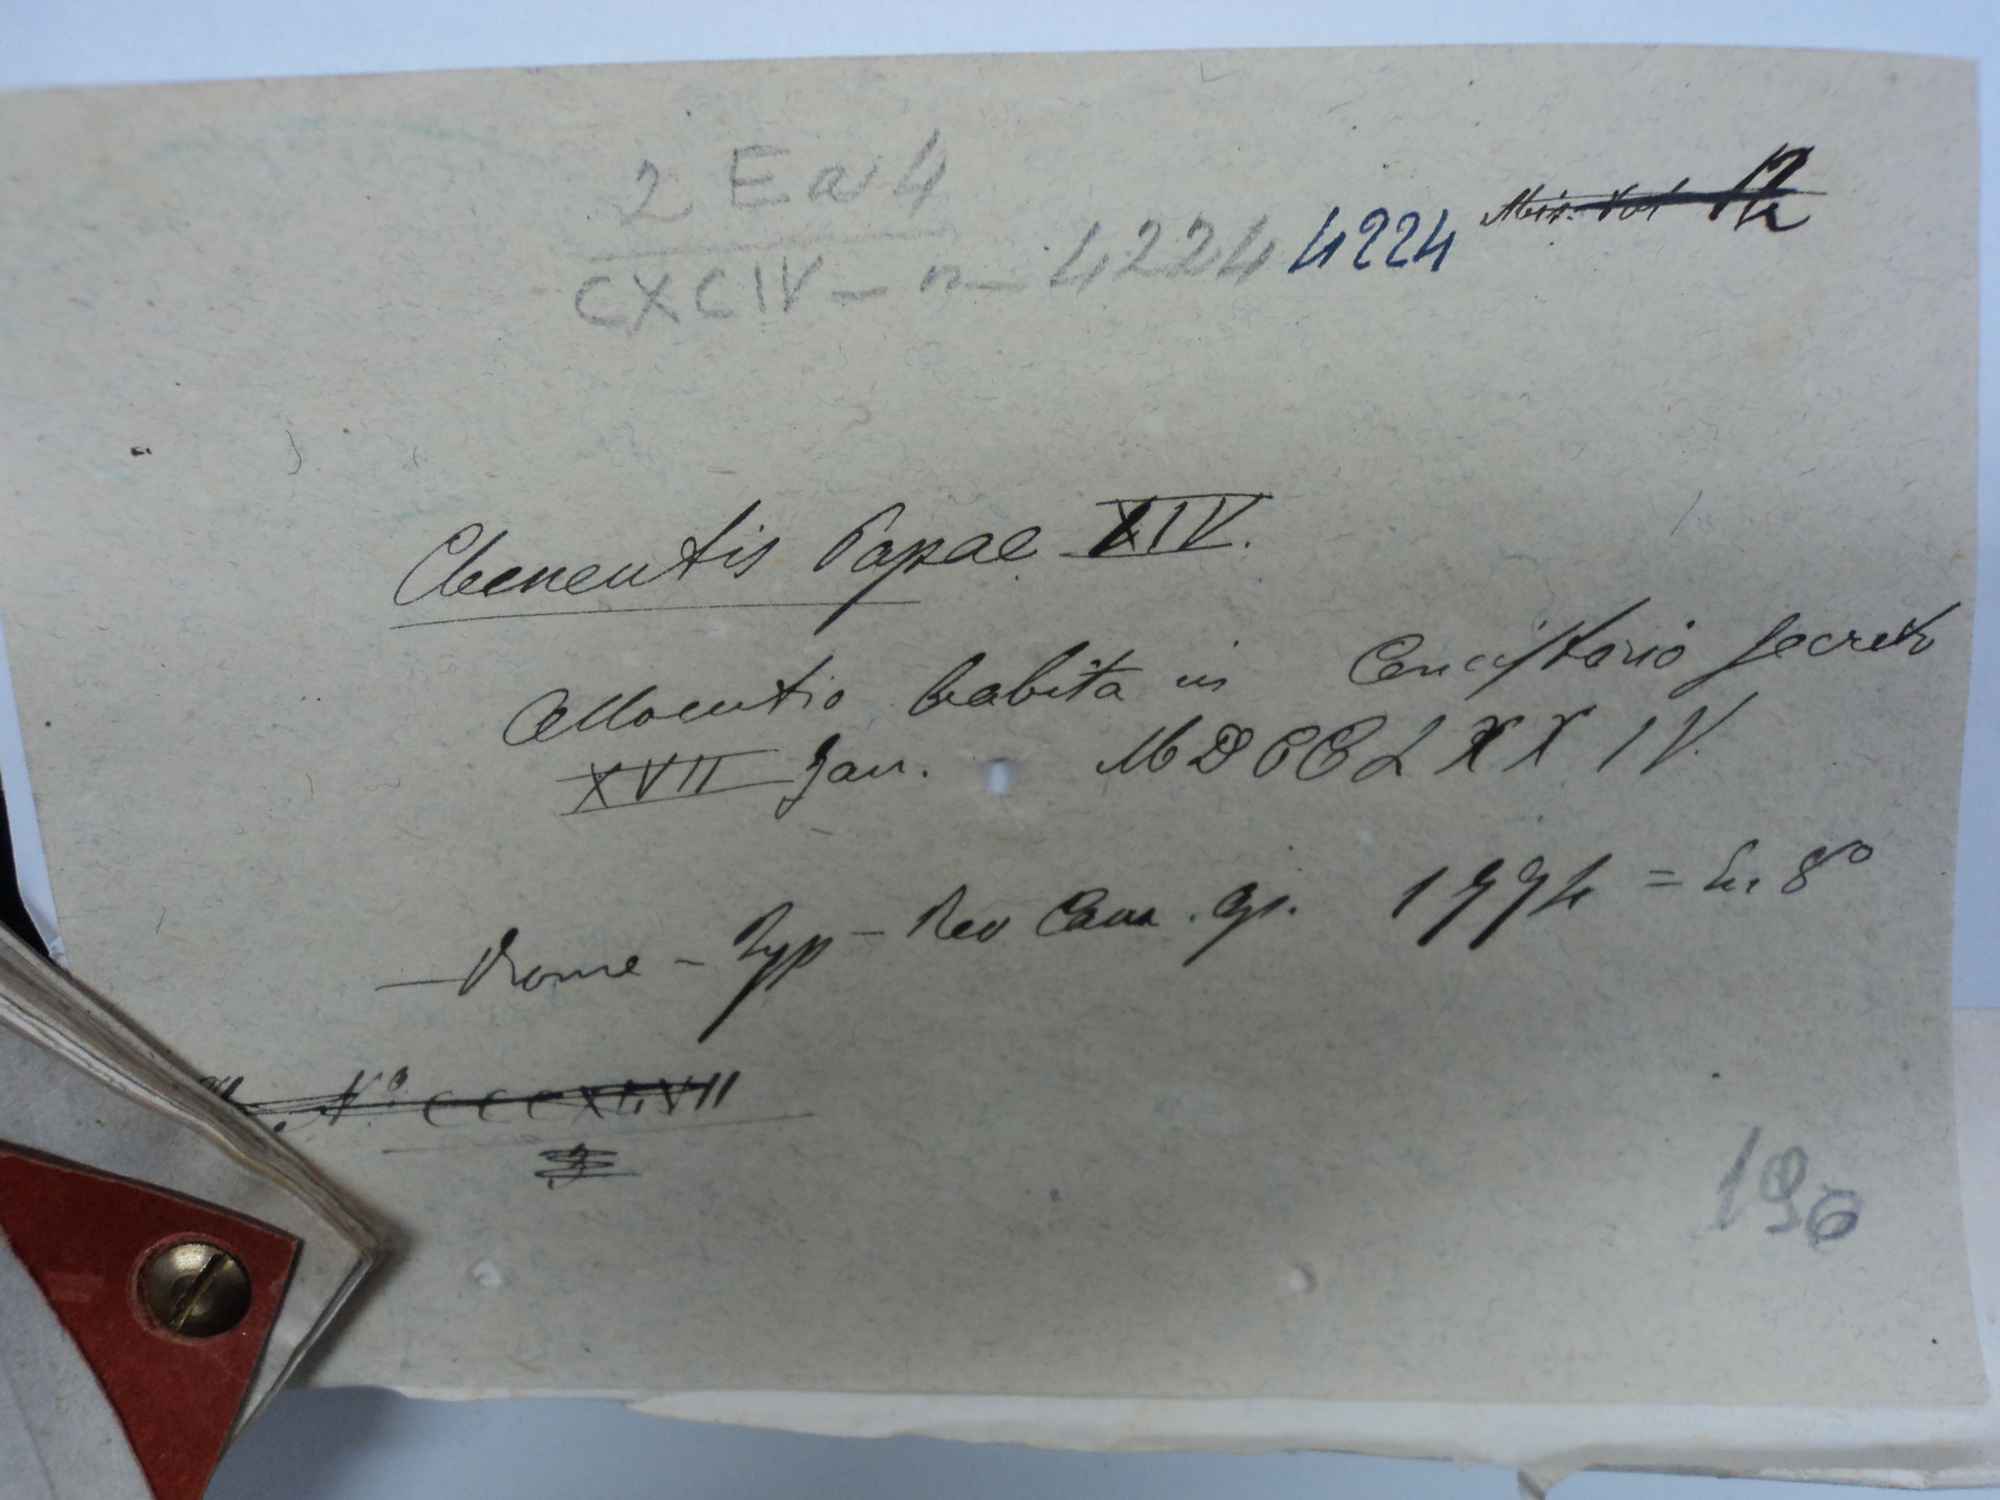 2 Ea 4
CXCIV - n - 4224 4224 Mis. Vol 12
Clementis Papae XIV.
Allocutio habita in Concistorio Secreto
XVII Jan. MDCCLXXIV.
— Rome - Typ - Rev Cam. Ap. 1774 = In 8º
Nº CCCXLVII
196